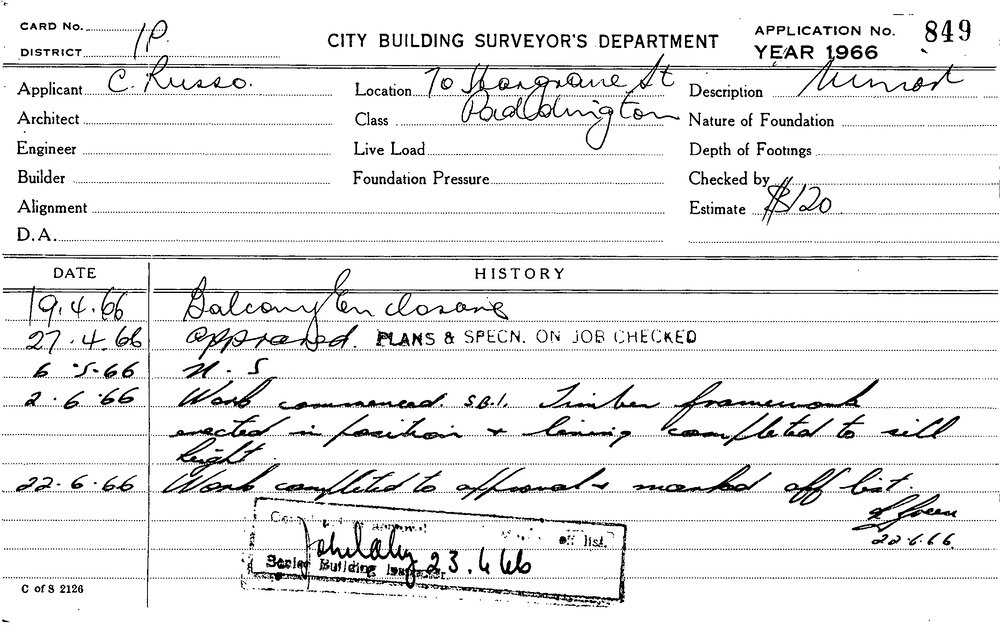 CARD No. 1P.
DISTRICT
CITY BUILDING SURVEYOR'S DEPARTMENT
APPLICATION No. 849
YEAR 1966
Applicant C. Russo.
Location 70 Hargrave St
Paddington
Description
Architect
Class
Nature of Foundation
Engineer
Live Load
Depth of Footings
Builder
Foundation Pressure
Checked by
Alignment
Estimate $120
D.A.
DATE HISTORY
19.4.66 Balcony Enclosure
27.4.66 approved. PLANS & SPECN. ON JOB CHECKED
6.5.66 N.S
2.6.66 Work commenced. S.B.I. Timber framework
erected in position & lining completed to sill
height.
22.6.66 Work completed to approval & marked off list.
Green
22.6.66.
approval off list.
23.6.66
Senior Building Inspector.
C of S 2126